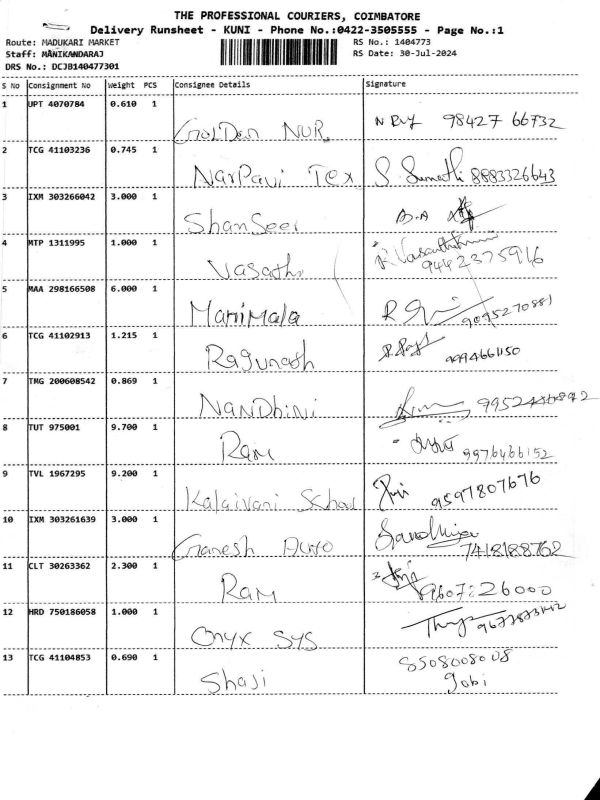 THE PROFESSIONAL COURIERS, COIMBATORE
Delivery Runsheet - KUNI - Phone No.:0422-3505555 - Page No.:1
Route: MADUKARI MARKET RS No.: 1404773
Staff: MANIKANDARAJ RS Date: 30-Jul-2024
DRS No.: DCJB140477301
S No Consignment No Weight PCS Consignee Details Signature
1 UPT 4070784 0.610 1 98427 66732
GolDen NUR
2 TCG 41103236 0.745 1
NarPavi Tex S. Sumathi 8883326643
3 IXM 303266042 3.000 1
ShanSeer
4 MTP 1311995 1.000 1 Vasanthkumar
Vasath 9442375916
5 MAA 298166508 6.000 1
Manimala 9095270881
6 TCG 41102913 1.215 1
Ragunath 9994661150
7 TMG 200608542 0.869 1
NanDhini
8 TUT 975001 9.700 1
Ram 9976466152
9 TVL 1967295 9.200 1
Kalaivani School 9597807676
10 IXM 303261639 3.000 1 Sandhiya
Ganesh Auto 7418188762
11 CLT 30263362 2.300 1
Ram
12 HRD 750186058 1.000 1
Onyx SYS
13 TCG 41104853 0.690 1 8508008008
Shaji gobi